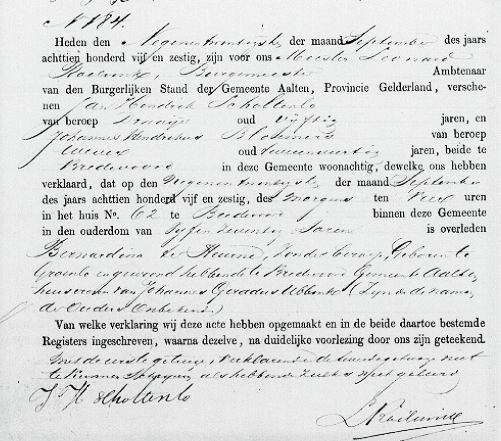 No 184.
Heden den Negenentwintigste der maand September des jaars
achttien honderd vijf en zestig, zijn voor ons Meester Leonard
Roelvink, Burgemeester Ambtenaar
van den Burgerlijken Stand der Gemeente Aalten, Provincie Gelderland, versche-
nen Jan Hendrik Scholtenlo
van beroep oud vijftig jaren, en
Johannes Hendrikus van beroep
Wever oud jaren, beide te
Bredevoord in deze Gemeente woonachtig, dewelke ons hebben
verklaard, dat op den Negenentwintigste der maand September
des jaars achttien honderd vijf en zestig, des morgens ten vier uren
in het huis No. 62 te Bredevoord binnen deze Gemeente
in den ouderdom van Vijfenzeventig Jaren is overleden
Bernardina te Heurne, zonder beroep, Geboren te
Groenlo en gewoond hebbende te Bredevoord Gemeente Aalten
huisvrouw van Johannes Geradus Ubbink (Zijnde de namen
der Ouders Onbekend)
Van welke verklaring wij deze acte hebben opgemaakt en in de beide daartoe bestemde
Registers ingeschreven, waarna dezelve, na duidelijke voorlezing door ons zijn geteekend.
met de eerste getuige, verklarende de tweede getuige niet
te kunnen als hebbende zulks niet geleerd
J. H. Scholtenlo
LRoelvink